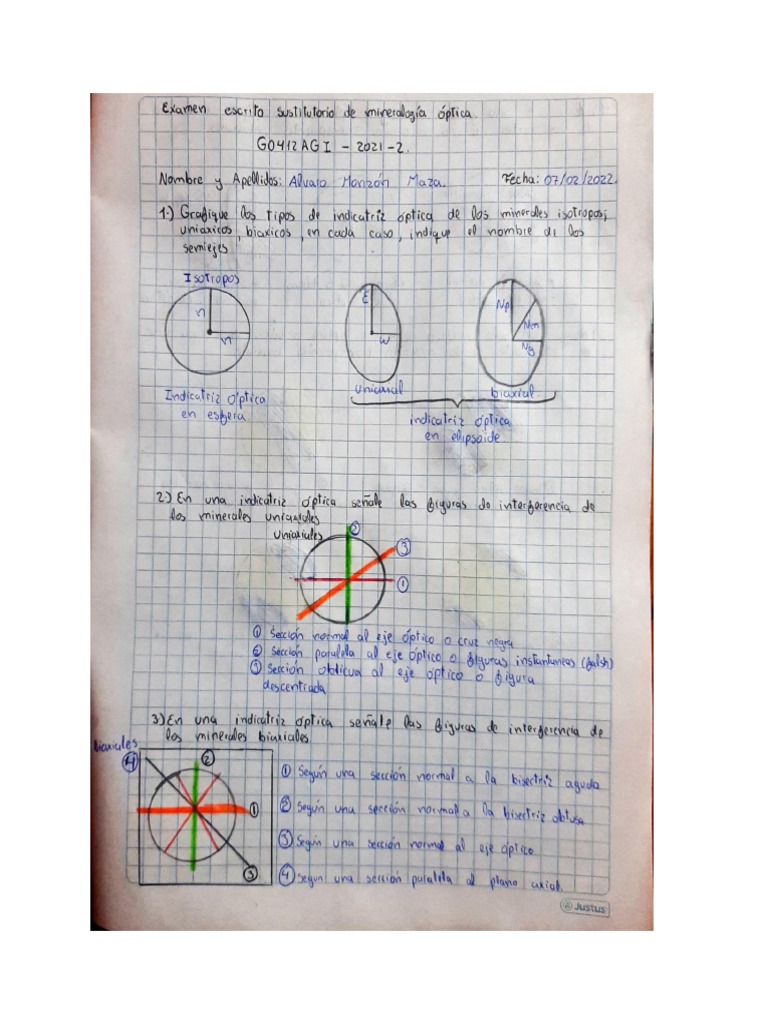 Examen escrito sustitutorio de mineralogía óptica.
GO412AGI - 2021-2.
Nombre y Apellidos: Alvaro Monzón Maza. Fecha: 07/02/2022.
1.) Grafique los tipos de indicatriz óptica de los minerales isotropos;
uniaxicos, biaxicos, en cada caso, indique el nombre de los
semiejes
Isotropos
n
n
Indicatriz óptica
en esfera
E
w
uniaxial
Np
Nm
Ng
biaxial.
indicatriz óptica
en elipsoide.
2.) En una indicatriz óptica señale las figuras de interferencia de
los minerales uniaxiales
uniaxiales
②
③
①
① Sección normal al eje óptico o cruz negra
② Sección paralela al eje óptico o figuras instantaneas (falsh)
③ Sección oblicua al eje óptico o figura
descentrada
3.) En una indicatriz óptica señale las figuras de interferencia de
los minerales biaxiales.
biaxiales
④
②
①
③
① Según una sección normal a la bisectriz aguda
② Según una sección normal a la bisectriz obtusa
③ Según una sección normal al eje óptico
④ Segun una sección paralela al plano axial.
Justus